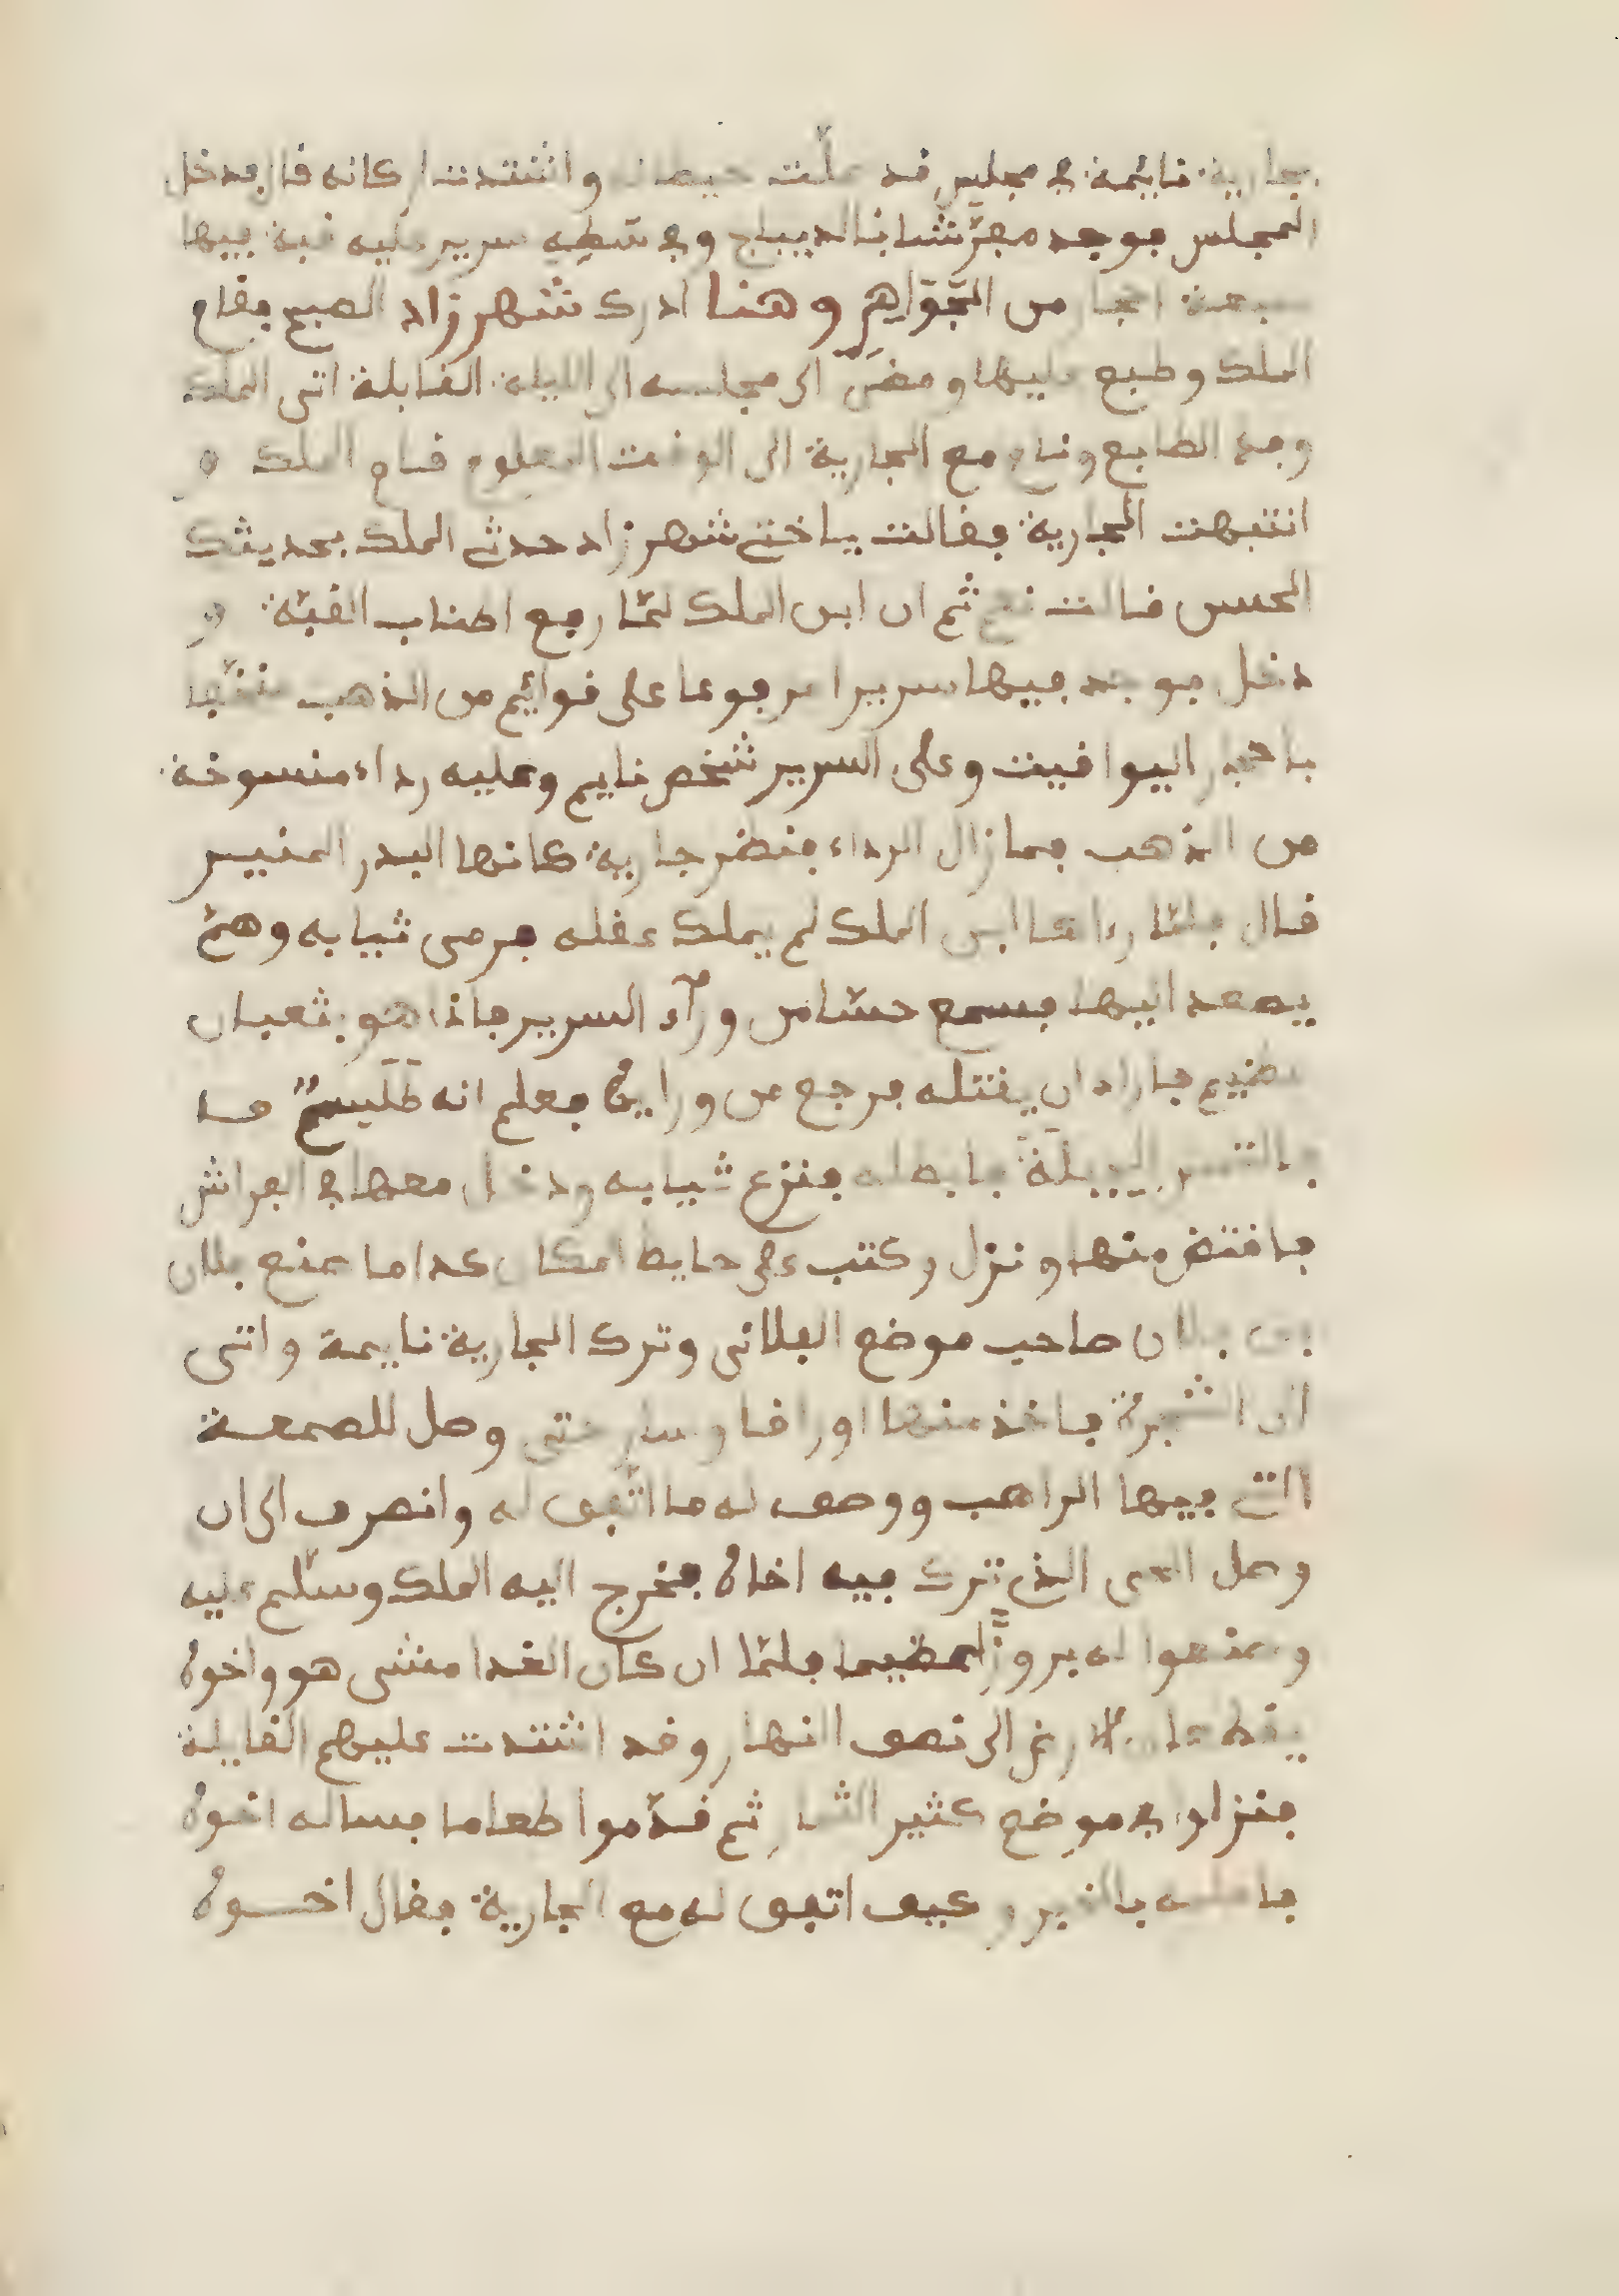 بجارية نايمة في مجلس قد علت حيطانه واشتدت اركانه قال فدخل
المجلس فوجد مفرّشا بالديباج وفي وسطه سرير عليه قبة فيها
سبعة احجار من الجَّوَاهِرِ وهنا ادرك شهرزاد الصبح فقام
الملك وطبع عليها ومضىّ الى مجلسه الى الليلة القابلة اتى الملك
وفك الطابع ونام مع الجارية الى الوقت المعلوم قام الملك و
انتبهت الجارية فقالت ياختي شهرزاد حدثي الملك بحديثك
الحسن قالت نعم ثم ان ابن الملك لمّا رفع اطناب القبّة و
دخل فوجد فيها سريرا مرفوعا على قوائم من الذهب
باحجار اليواقيت وعلى السرير شخص نايم وعليه رداء منسوخة
من الذهب فمازال الرداء فنضر جارية كانها البدر المنيير
قال فلمّا راها ابن الملك لم يملك عقله فرمى ثيابه وهمّ
يصعد اليها فسمع حسّا من ورآء السرير فاذا هو بثعبان
عضيم فاراد ان يقتله فرجع من ورايه فعلم انه طَلَسِمٌ
فنزع ثيابه ودخل معها في الفراش
فاقتض منها ونزل وكتب على حايط المكان هكذا ما صنع فلان
بن فلان صاحب موضع الفلانى وترك الجارية نايمة واتى
الى الشجرة فاخذ منها اوراقا وسار حتى وصل للصمعة
التي فيها الراهب ووصف له ما اتّفق له وانصرف الى ان
وصل الحى الذي ترك فيه اخاه فخرج اليه الملك وسلّم عليه
وصنعوا له بروزّا عضيما فلمّا ان كان الغدا مشى هو واخوه
يقطعان الارض الى نصف النهار وقد اشتدت عليهم القايلة
فنزلوا في موضع كثير الثمار ثم قدّموا طعاما فساله اخوه
فاعلمه بالخبر وكيف اتفق له مع الجارية فقال اخوه